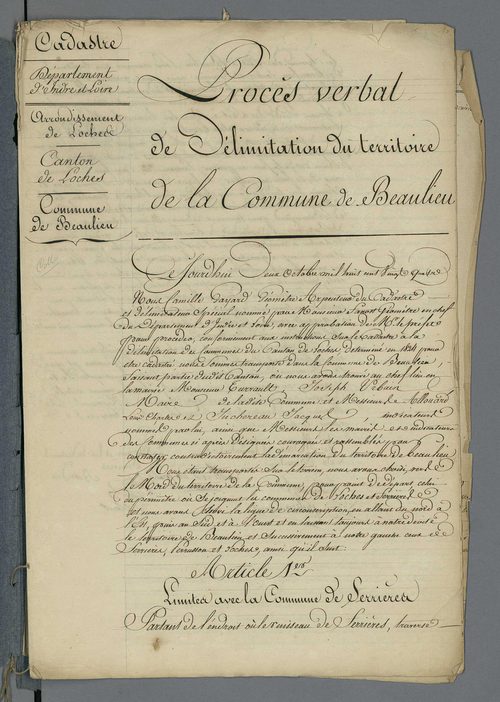 Cadastre
Département
d'Indre et Loire
Arrondissement
de Loches
Canton
de Loches
Commune
de Beaulieu
Procès verbal
de Délimitation du territoire
de la Commune de Beaulieu
Ce Jourd'hui Deux Octobre mil huit cent Vingt quatre
Nous Camille Gayard Géomètre Arpenteur du Cadastre
et délimitateur Spécial nommé par Monsieur Géomètre en chef
du département d'Indre et Loire, avec approbation de Mr le préfet
pour procéder, conformément aux instructions sur le cadastre à la
délimitation des Communes du Canton de Loches, devant en 1824
être cadastré nous sommes transporté dans la Commune de Beaulieu
faisant partie dudit Canton, où nous avons trouvé au chef lieu en
la mairie Monsieur Joseph
Maire de ladite Commune et Messieurs Allard
Louis Charles et Jacques, indicateurs
nommés par lui, ainsi que Messieurs les maires et indicateurs
des Communes ci après Désignées convoqués et rassemblés pour
contradictoirement la démarcation du territoire de Beaulieu
Nous étant transportés sur le terrain, nous avons choisi, vers
le Nord du territoire de la Commune, pour point de départ celui
du périmètre où se joignent les communes de Loches et Ferrières
et nous avons suivi la ligne de circonscription, en allant du nord à
l'Est, puis au Sud et à l'ouest et en laissant toujours à notre droite
le territoire de Beaulieu et successivement à notre gauche ceux de
Ferrières, Perrusson et Loches, ainsi qu'il suit:
Article 1er
Limites avec la Commune de Ferrières
Partant de l'endroit où le ruisseau de Ferrières, traverse